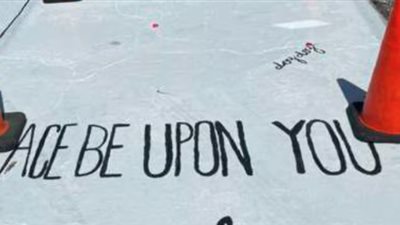 ACE BE UPON YOU